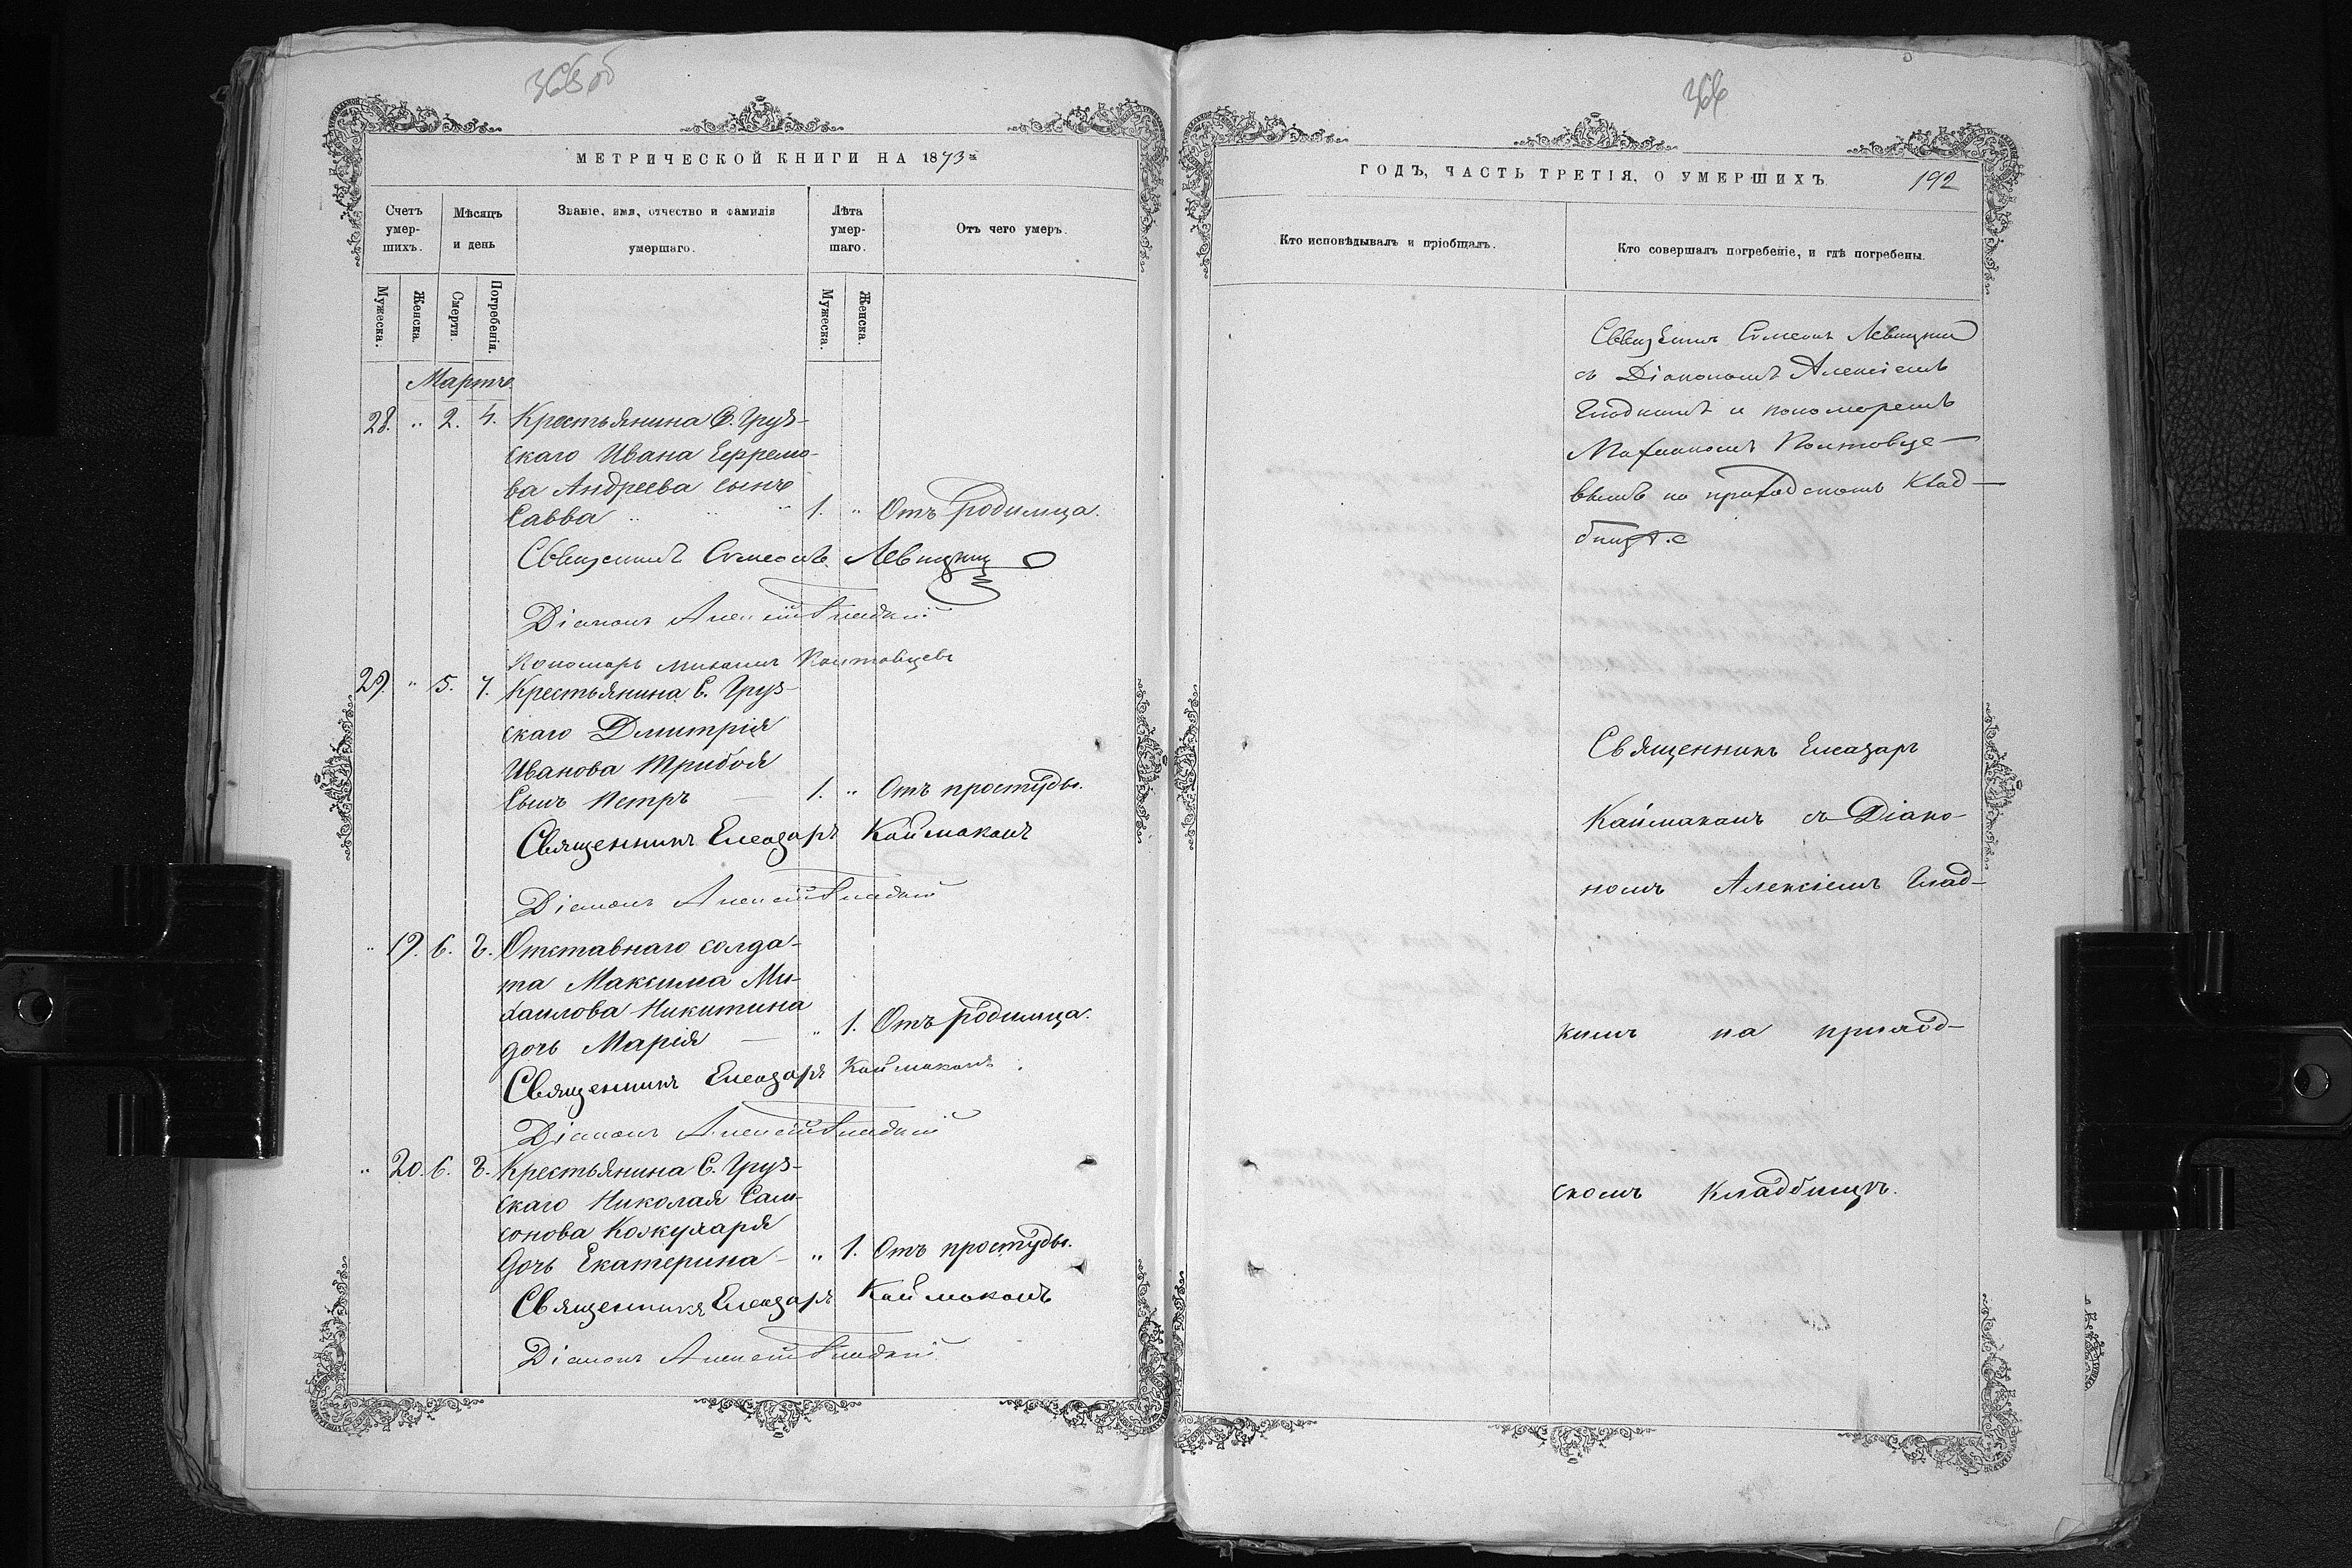 365 об
МЕТРИЧЕСКОЙ КНИГИ НА 1873й
Счетъ умер-шихъ.
Мѣсяцъ и день
Званіе, имя, отчество и фамилія умершаго.
Лѣта умер-шаго.
Отъ чего умеръ.
Мужеска.
Женска.
Смерти.
Погребенія.
Мужеска.
Женска.
Мартъ
28. " 2. 4. Крестьянина С. Груз-
скаго Ивана Ефремо-
ва Андреева сынъ
Савва " " " 1. " Отъ родимца.
Священникъ Симеонъ Левицкій
Діаконъ Алексій Гладкій
Пономарь Михаилъ Полтовцевъ
29. " 5. 7. Крестьянина С. Груз-
скаго Дмитрія
Иванова Трибоя
Сынъ Петръ — 1. " Отъ простуды.
Священникъ Елеазаръ Каймаканъ
Діаконъ Алексій Гладкій
" 19. 6. 8. Отставнаго солда-
та Максима Ми-
хаилова Никитина
дочь Марія — " 1. Отъ родимца.
Священникъ Елеазаръ Каймаканъ
Діаконъ Алексій Гладкій
" 20. 6. 8. Крестьянина С. Груз-
скаго Николая Сам-
сонова Кожухаря
Дочь Екатерина — " 1. Отъ простуды.
Священникъ Елеазаръ Каймаканъ
Діаконъ Алексій Гладкій
366
ГОДЪ, ЧАСТЬ ТРЕТІЯ, О УМЕРШИХЪ
192
Кто исповѣдывалъ и пріобщалъ.
Кто совершалъ погребеніе, и гдѣ погребены.
Священникъ Симеонъ Левицкій
съ Діакономъ Алексіемъ
Гладкимъ и пономаремъ
Михаиломъ Полтовце-
вымъ на приходскомъ клад-
бищѣ.
Священникъ Елеазаръ
Каймаканъ съ Діако-
номъ Алексіемъ Глад-
кимъ на приход-
скомъ кладбищѣ.